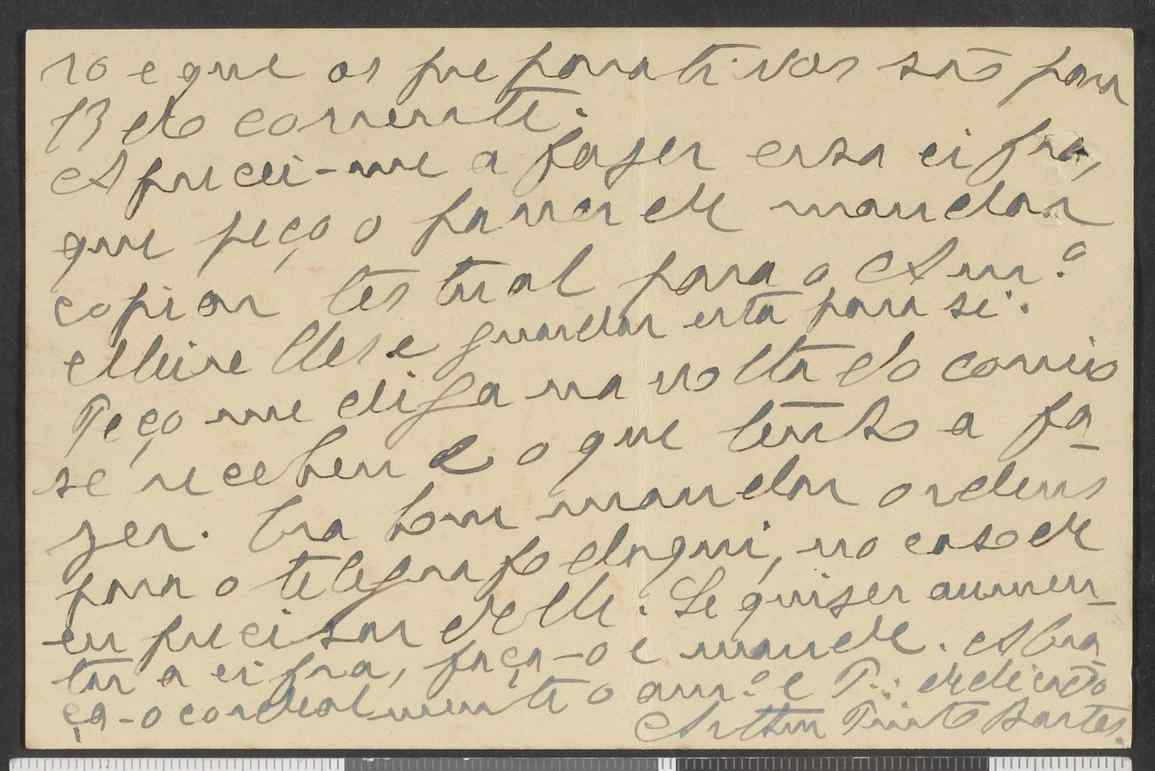 ro e que os preparativos são para
13 do corrente.
Aprecei-me a fazer essa cifra,
que peço o favor de mandar
copiar testual para o Am.º
Meirelles e guardar esta para si.
Peço me diga na volta do correio
se recebeu e o que tenho a fa-
zer. Era bom mandar ordens
para o telegrafo daqui, no caso de
eu precisar delle. Se quiser aumen-
tar a cifra, faça-o e mande. Abra-
ça-o cordealmente o am.º e P∴ dedicado
Arthur Pinto Bastos.